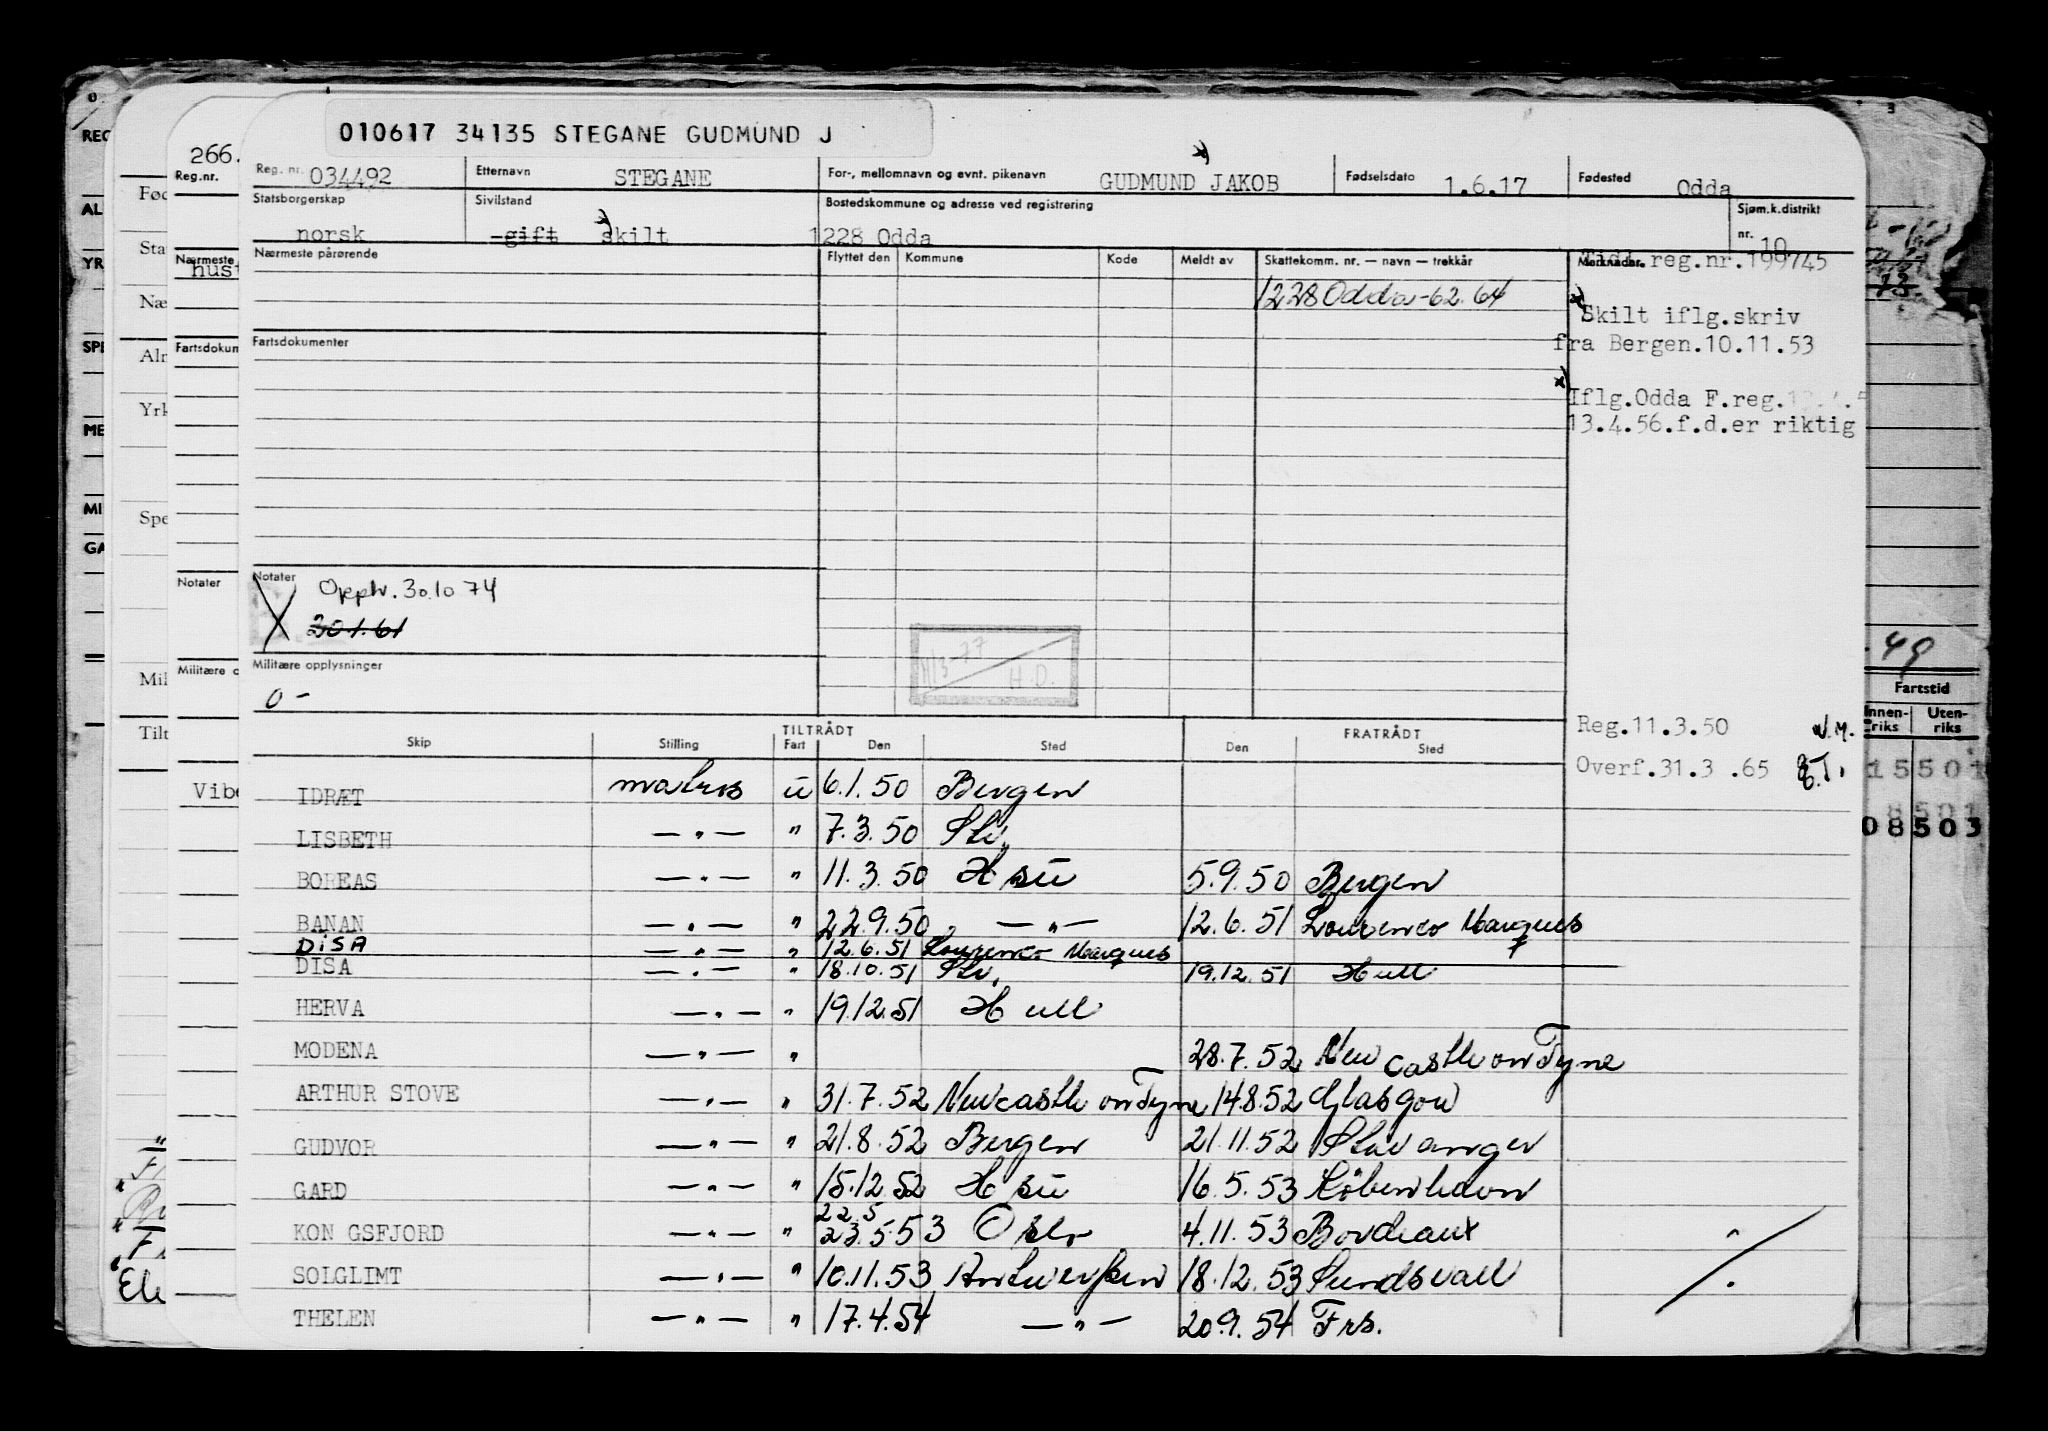 010617 34135 STEGANE GUDMUND J
266.
Reg. nr. 034492 Etternavn STEGANE For-, mellomnavn og evnt. pikenavn GUDMUND JAKOB Fødselsdato 1.6.17 Fødested Odda
Statsborgerskap norsk Sivilstand gift skilt Bostedskommune og adresse ved registrering 1228 Odda Sjøm.k.distrikt nr. 10
Nærmeste pårørende Flyttet den Kommune Kode Meldt av Skattekomm. nr. — navn — trekkår Merknader Tidl.reg.nr.199745
1228 Odda-62.64
Skilt iflg.skriv
fra Bergen.10.11.53
Fartsdokumenter
Iflg.Odda F.reg.
13.4.56.f.d.er riktig
Notater Opphr. 30.10 74
30 1. 61
H.D.
Militære opplysninger
0 -
Reg.11.3.50
Overf.31.3 .65
TILTRÅDT FRATRÅDT
Skip Stilling Fart Den Sted Den Sted
IDRÆT matros u 6.1.50 Bergen
LISBETH — " — " 7.3.50 Stv.
BOREAS — " — " 11.3.50 Hsu 5.9.50 Bergen
BANAN — " — " 22.9.50 — " — 12.6.51 Lourenco Marques
DISA — " — " 12.6.51 Lourenco Marques
DISA — " — " 18.10.51 Stv. 19.12.51 Hull
HERVA — " — " 19.12.51 Hull
MODENA — " — " 28.7.52 Newcastle on Tyne
ARTHUR STOVE — " — " 31.7.52 Newcastle on Tyne 14.8.52 Glasgow
GUDVOR — " — " 21.8.52 Bergen 21.11.52 Stavanger
GARD — " — " 15.12.52 Hsu 16.5.53 København
22.5
KON GSFJORD — " — " 23.5.53 Oslo 4.11.53 Bordeaux
SOLGLIMT — " — " 10.11.53 Antwerpen 18.12.53 Sundsvall
THELEN — " — " 17.4.54 — " — 20.9.54 Frs.
Reg.nr.
Nærmeste
Fartsdokum
Notater
Militære o
Vibe
49
Fartstid
Innen-riks Uten-riks
15501
08503